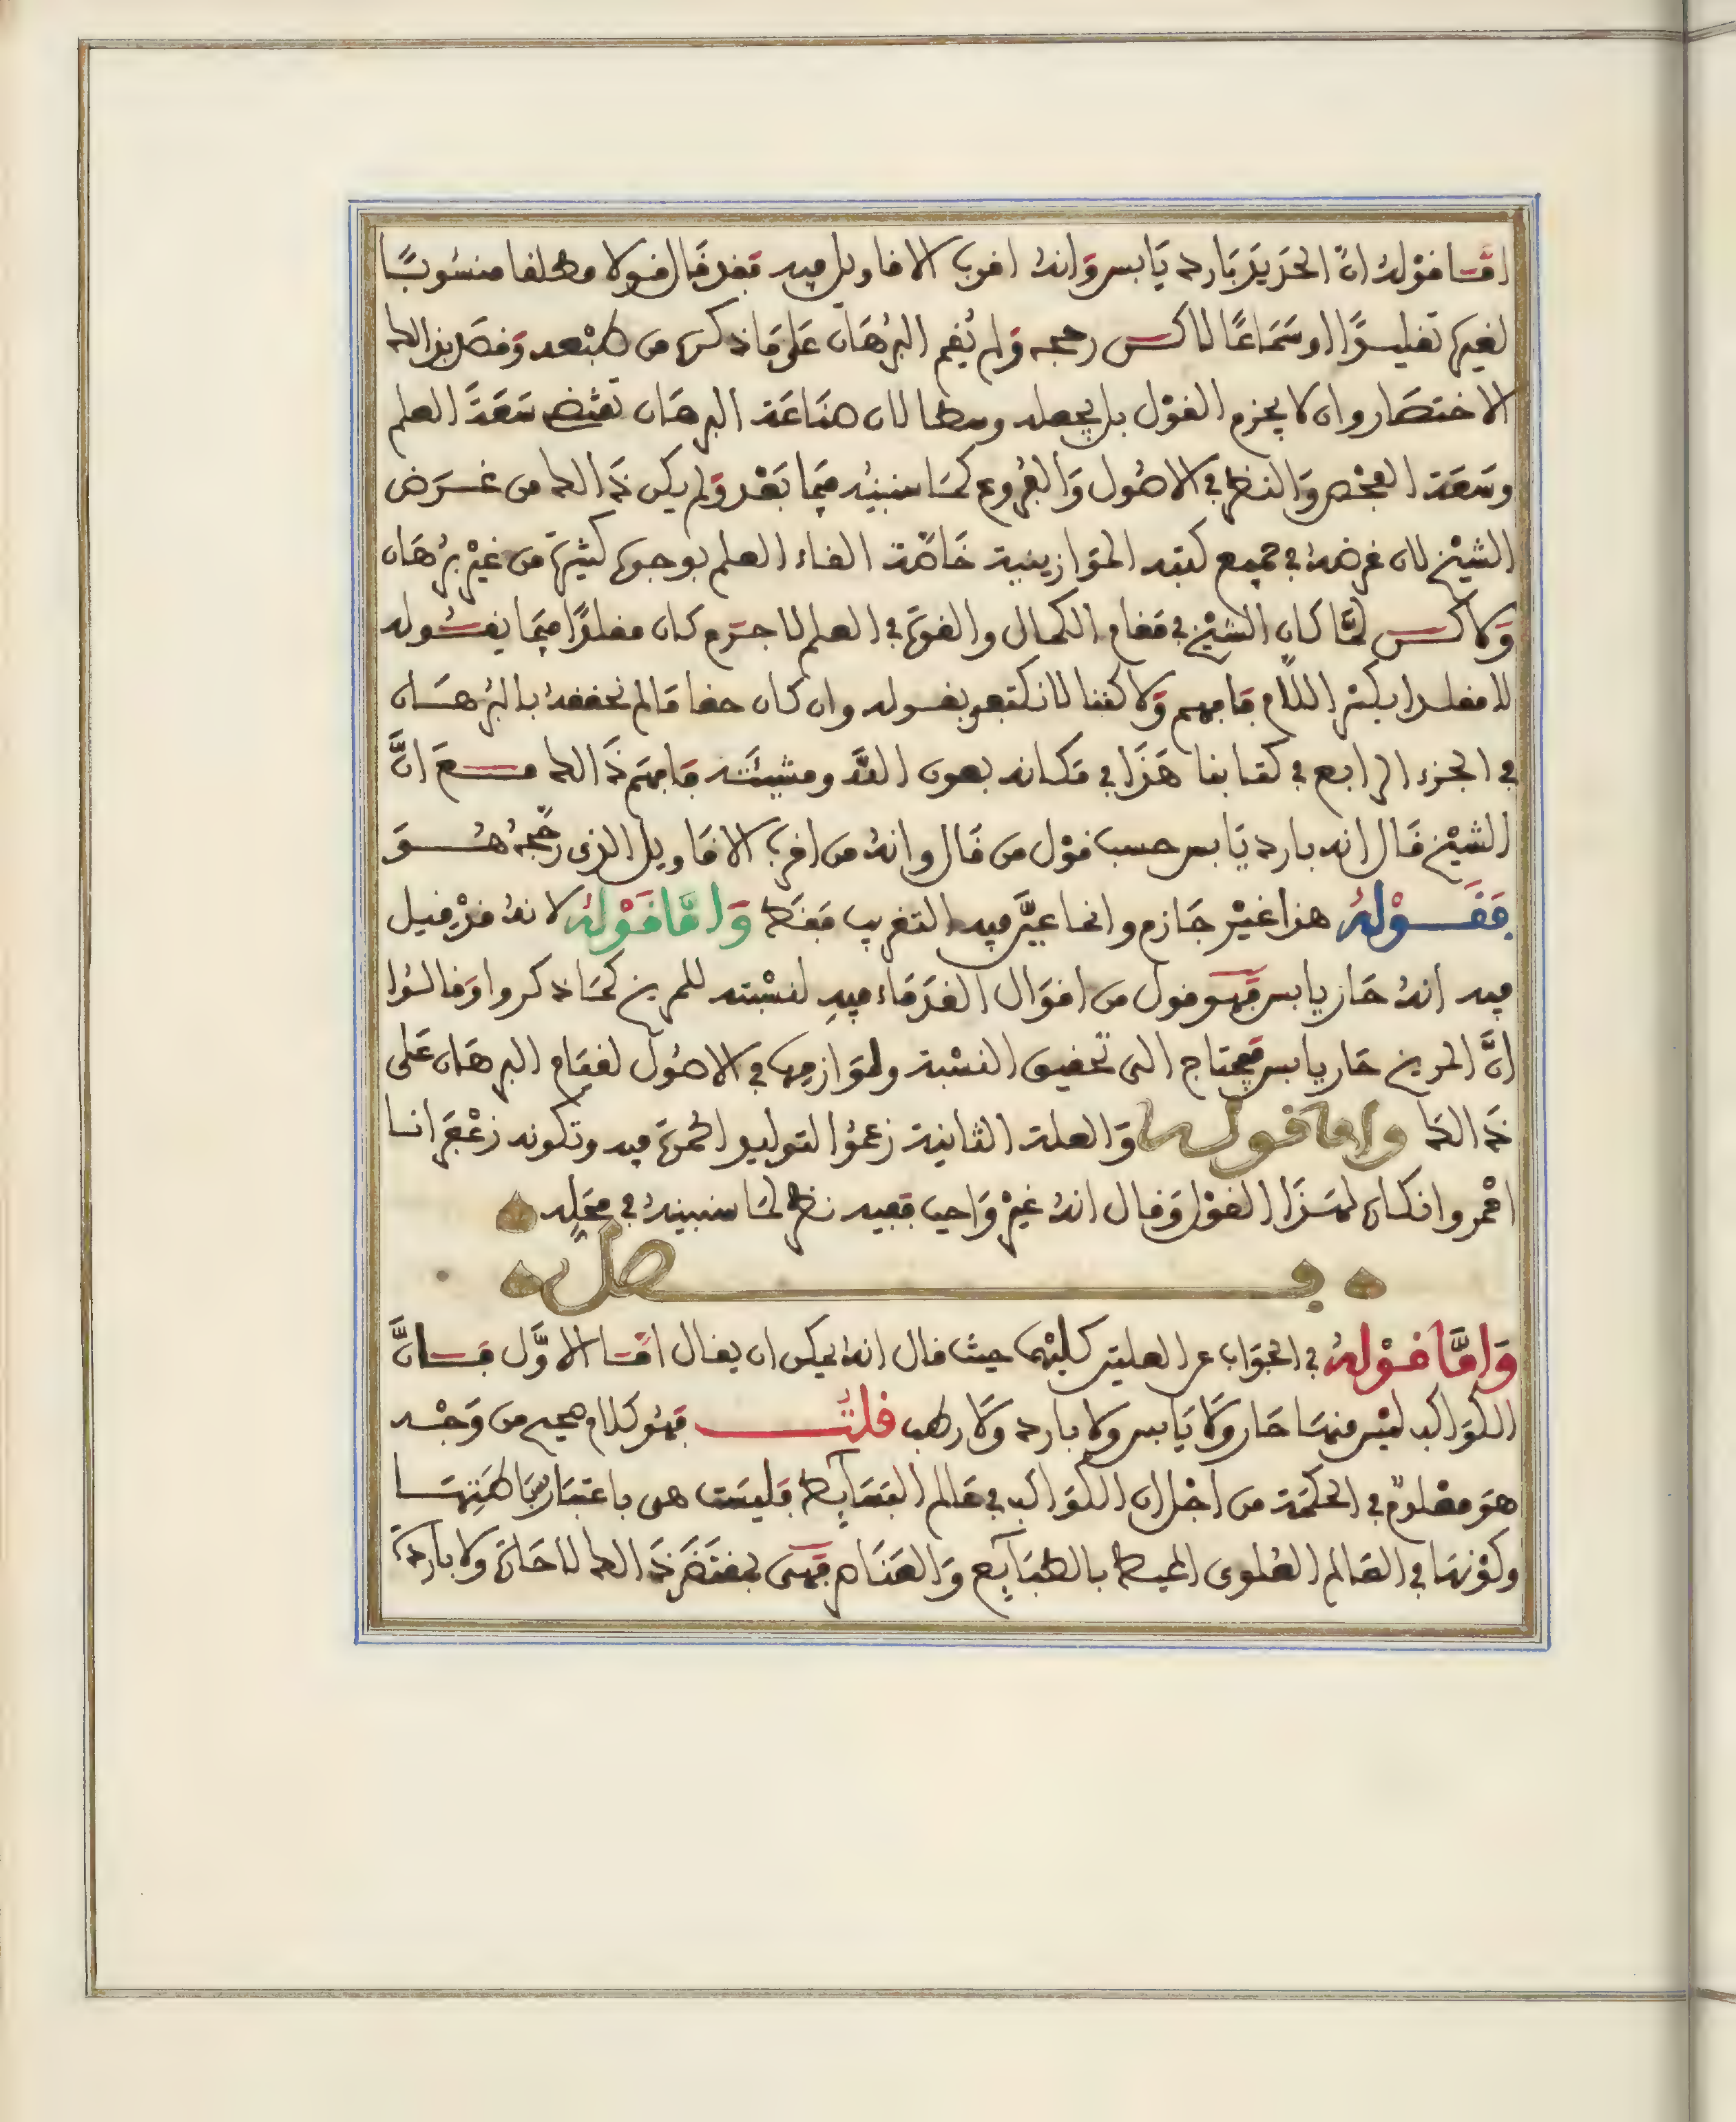 امّا قوْلهُ انّ الحَديدَ بَارد يَابس وَانهُ اقرب الاقاويل فيه فقد قَال قولا مطلقا منسُوبًا
لغيره تقليدًا او سَمَاعًا لاكن رجحه وَلم يُقم البُرهَان عَلى مَا ذكره من طبْعه وَقصَد بذالك
الاختصَار وان لا يجزم القوْل بل يجعله وسطا لان صنَاعَة البرهَان تقتضى سَعَةَ العلم
وسَعَة الفحْص وَالنظر في الاصُول وَالفرُوع كمَا سنبينُه فيمَا بَعْد وَلم يكن ذَالك من غرَض
الشيْخ لان غرضهُ في جميع كتبه الموَازينية خَاصّة القاء العلم بوجوه كثيرَة من غيْر برُهَان
وَلاكن لمَّا كان الشيْخ في مَقام الكمال والقوَة في العلم لا جرَم كان مقلدًا فيمَا يقُوله
لا مقلدا بكسْر اللَّام فافهم وَلاكننا لا نكتفى بقوله وان كان حقا مَا لم نحققهُ بالبُرهَان
في الجزء الرابع في كتابنا هَذَا في مَكانه بعون اللَّه ومشيئته فافهَم ذَالك مَعَ انَّ
الشيْخ قَال انه بارد يَابس حسب قوْل من قَال وانهُ من اقرب الاقَاويل الذى رَجّحَهُ هُوَ
فَقَوْلهُ هذا غيْر جَازم وانما عيَّن فيه التقريب فقَط وَامَّا قَوْلهُ لانهُ قدْ قيل
فيه انهُ حَار يابس فهَو قول من اقوَال القدَمَاء فيهِ لنسْبته للمرِيخ كمَا ذكروا وَقالُوا
انَّ المريخ حَار يابس فيحتَاج الى تحقيق النسْبة ولموَازينها في الاصُول لقيَام البرهَان عَلى
ذَالك واما قوله وَالعلة الثانيَة زعمُوا لتوليد الحمرَة فيه وتكونه زعْفرَانا
احْمر وانكاره لهَذَا القوْل وَقال انهُ غيرْ وَاجب ففيه نظر لمَا سنبينهُ في محَلِّه
فصل
وَامَّا قوْلهُ في الجوَاب عن العلتين كليْهمَا حيث قال انهُ يمكن ان يقال امَّا الاوَّل فانَّ
الكوَاكب ليْس منهَا حَار وَلَا يَابس ولا بارد وَلَا رطب قلتُ فهُو كلام صحيح من وَجْه
هوَ معْلومٌ في الحكمَة من اجْل ان الكوَاكب في عَالم البسَآيط فليسَت هى باعتبَار بسَاطتِهَا
وكوْنهَا في العَالم العُلوى المحيط بالطبَآيع وَالعنَاصر فهَى بمقتَضَى ذَالك لا حَارَة ولا بارِدَة